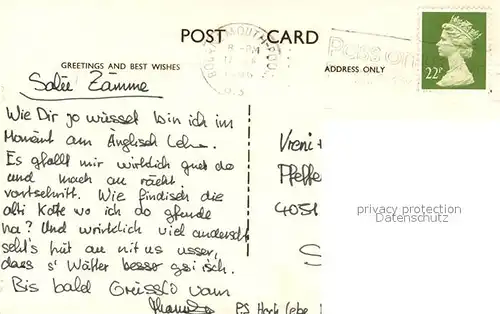 POST CARD
BOURNEMOUTH-POOLE
8 - PM
GREETINGS AND BEST WISHES
ADDRESS ONLY
22P
Salü Zämme
Wie Dir jo wüsset bin ich im
Momänt am Änglisch Lehre.
Es gfallt mir wirklich guet do
und mach au rächt
vortschritt. Wie findisch die
alti Kotte wo ich do gfunde
ha? Und wirklich viel anderscht
seht's hüt au nit us usser,
dass s' Wätter besser gsi isch.
Bis bald Grüssli vom
Vreni +
Pfeffe
4051
S
privacy protection
Datenschutz
PS Hoch lebe